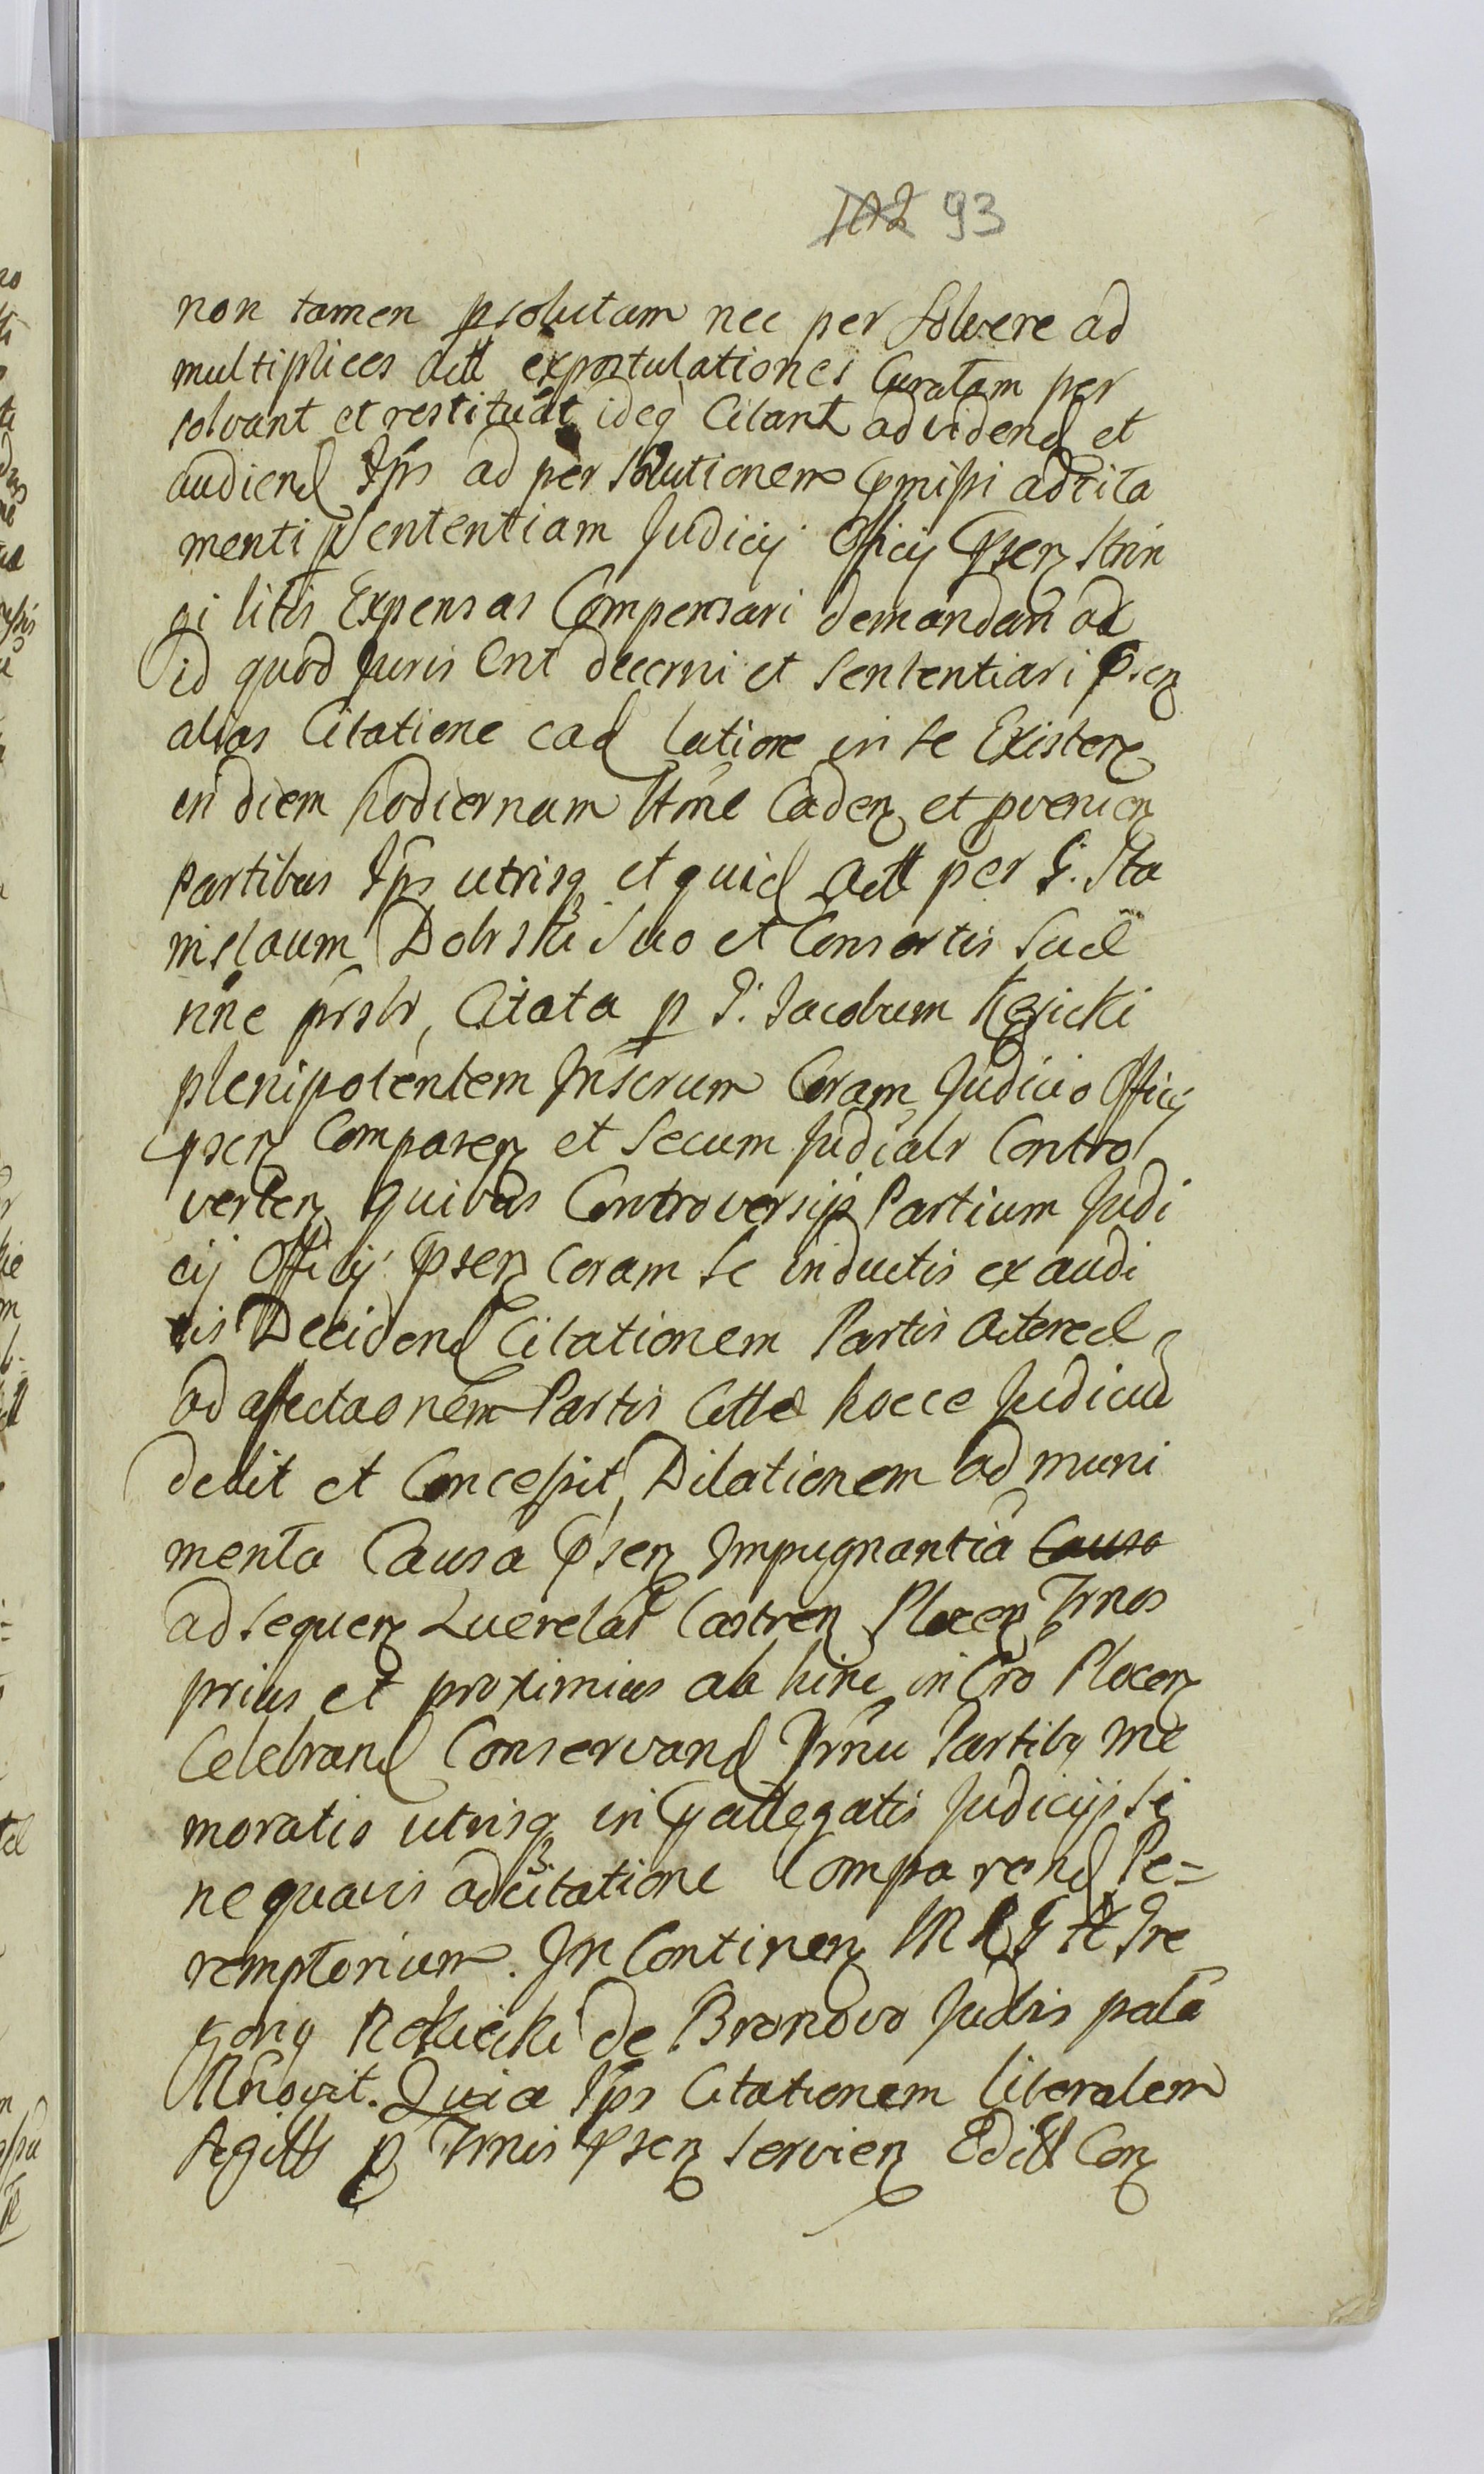 102 93
non tamen psolutam nec per solvere ad
multiplices actt expostulationes Curatam per
solvant et restituat ideq Citant ad vidend et
audiend Ips ad per solutionem pmissi adcita
menti p sententiam Judicij Officij psen strin
gi litis Expensas Compensari demandari ad
id quod Juris Ent decerni et sententiari psen
alias Citatione ead latiore in se Existen
in diem hodiernam Itme Caden et pvenien
Partibus Ips utrisq et quid actt per G. Sta
nislaum Dobrski suo et Consortis suae
nne prsbr, Citata p G. Jacobum Kęsicki
plenipotentem Inscrum Coram Judicio Officij
psen Comparen et secum Judialr Contro
verten quibus Controversijs Partium Judi
cij Officij psen Coram se inductis ex audi
tis Decidend Citationem Partis Actereae
ad affectaonem Partis Cttae hocce Judiciu
dedit et Concessit, Dilationem ad muni
menta Causa psen Impugnantia Causa
ad sequen Querelas Castren Plocen Trnos
prius et proximius ab hinc in Cro Plocen
Celebrand Conservand Trnu Partiby me
moratis utrisq in pallegatis Judicijs si
ne quavis adcitatione Comparend Pe=
remptorium. In Continen
de Bronovo Judis pala
Mnovit. Quia Ips Citationem liberalem
p Trnis psen servien Con